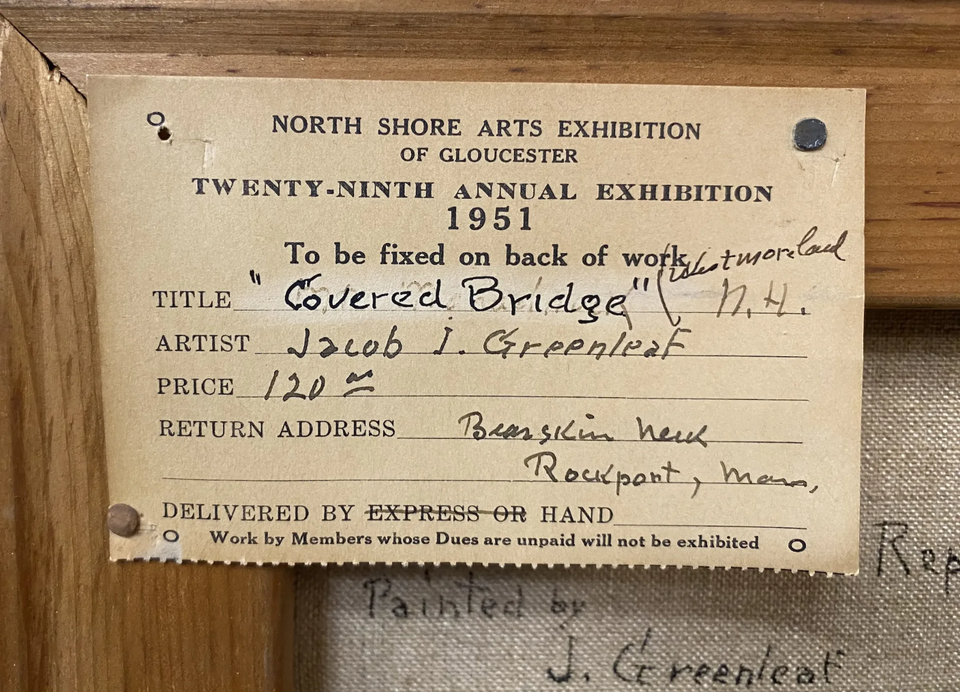 NORTH SHORE ARTS EXHIBITION
OF GLOUCESTER
TWENTY-NINTH ANNUAL EXHIBITION
1951
To be fixed on back of work
TITLE "Covered Bridge" (Westmoreland
N.H.
ARTIST Jacob I. Greenleaf
PRICE 120 00
RETURN ADDRESS Bearskin Neck
Rockport, Mass,
DELIVERED BY EXPRESS OR HAND
Work by Members whose Dues are unpaid will not be exhibited
Rep
Painted by
J. Greenleaf